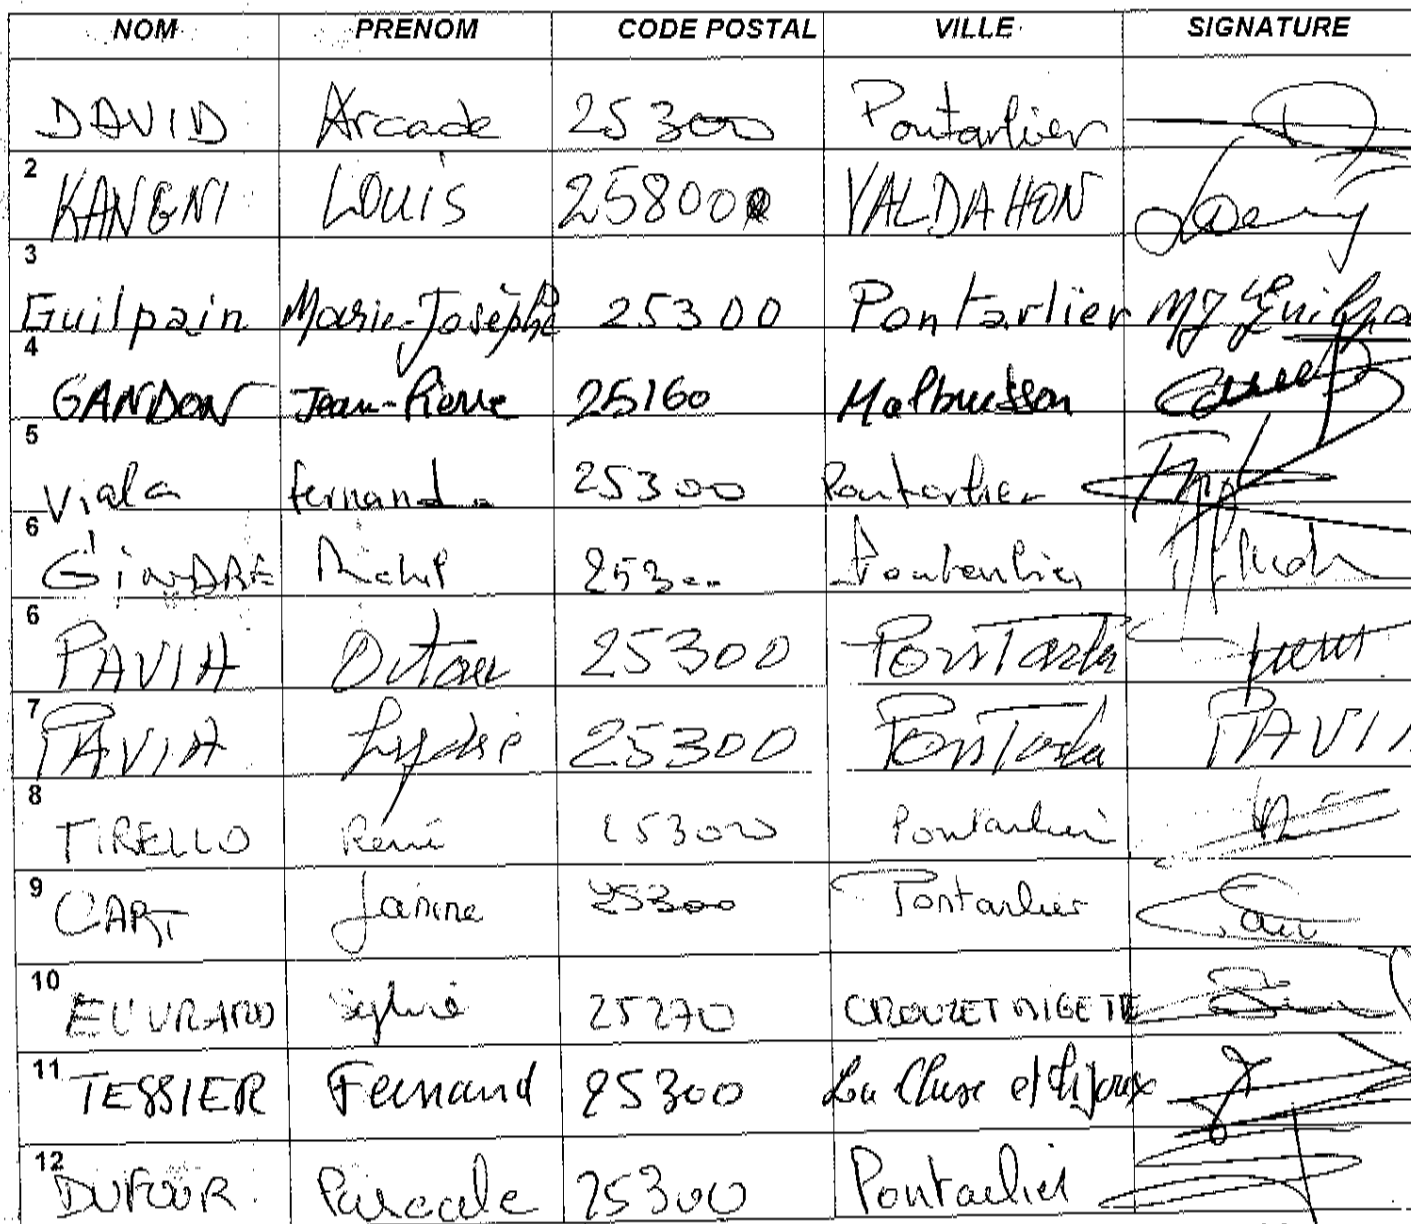 NOM PRENOM CODE POSTAL VILLE SIGNATURE
DAVID Arcade 25300 Pontarlier
2 KANGNI Louis 25800 VALDAHON
3 Guilpain Marie-Josèphe 25300 Pontarlier MJ Guilpa
4 GANDON Jean-Pierre 25160 Malbuisson
5 Viala fernanda 25300 Pontarlier
6 GINDRE Michel 25300 Pontarlier
6 PAVIA 25300 Pontarlier
7 PAVIA Lydie 25300 Pontarlier PAVIA
8 TIRELLO René 25300 Pontarlier
9 CART Janine 25300 Pontarlier
10 EUVRARD Sylvie 25270 CROUZET MIGETTE
11 TESSIER Fernand 25300 La Cluse et Mijoux
12 DUFOUR Pascale 25300 Pontarlier